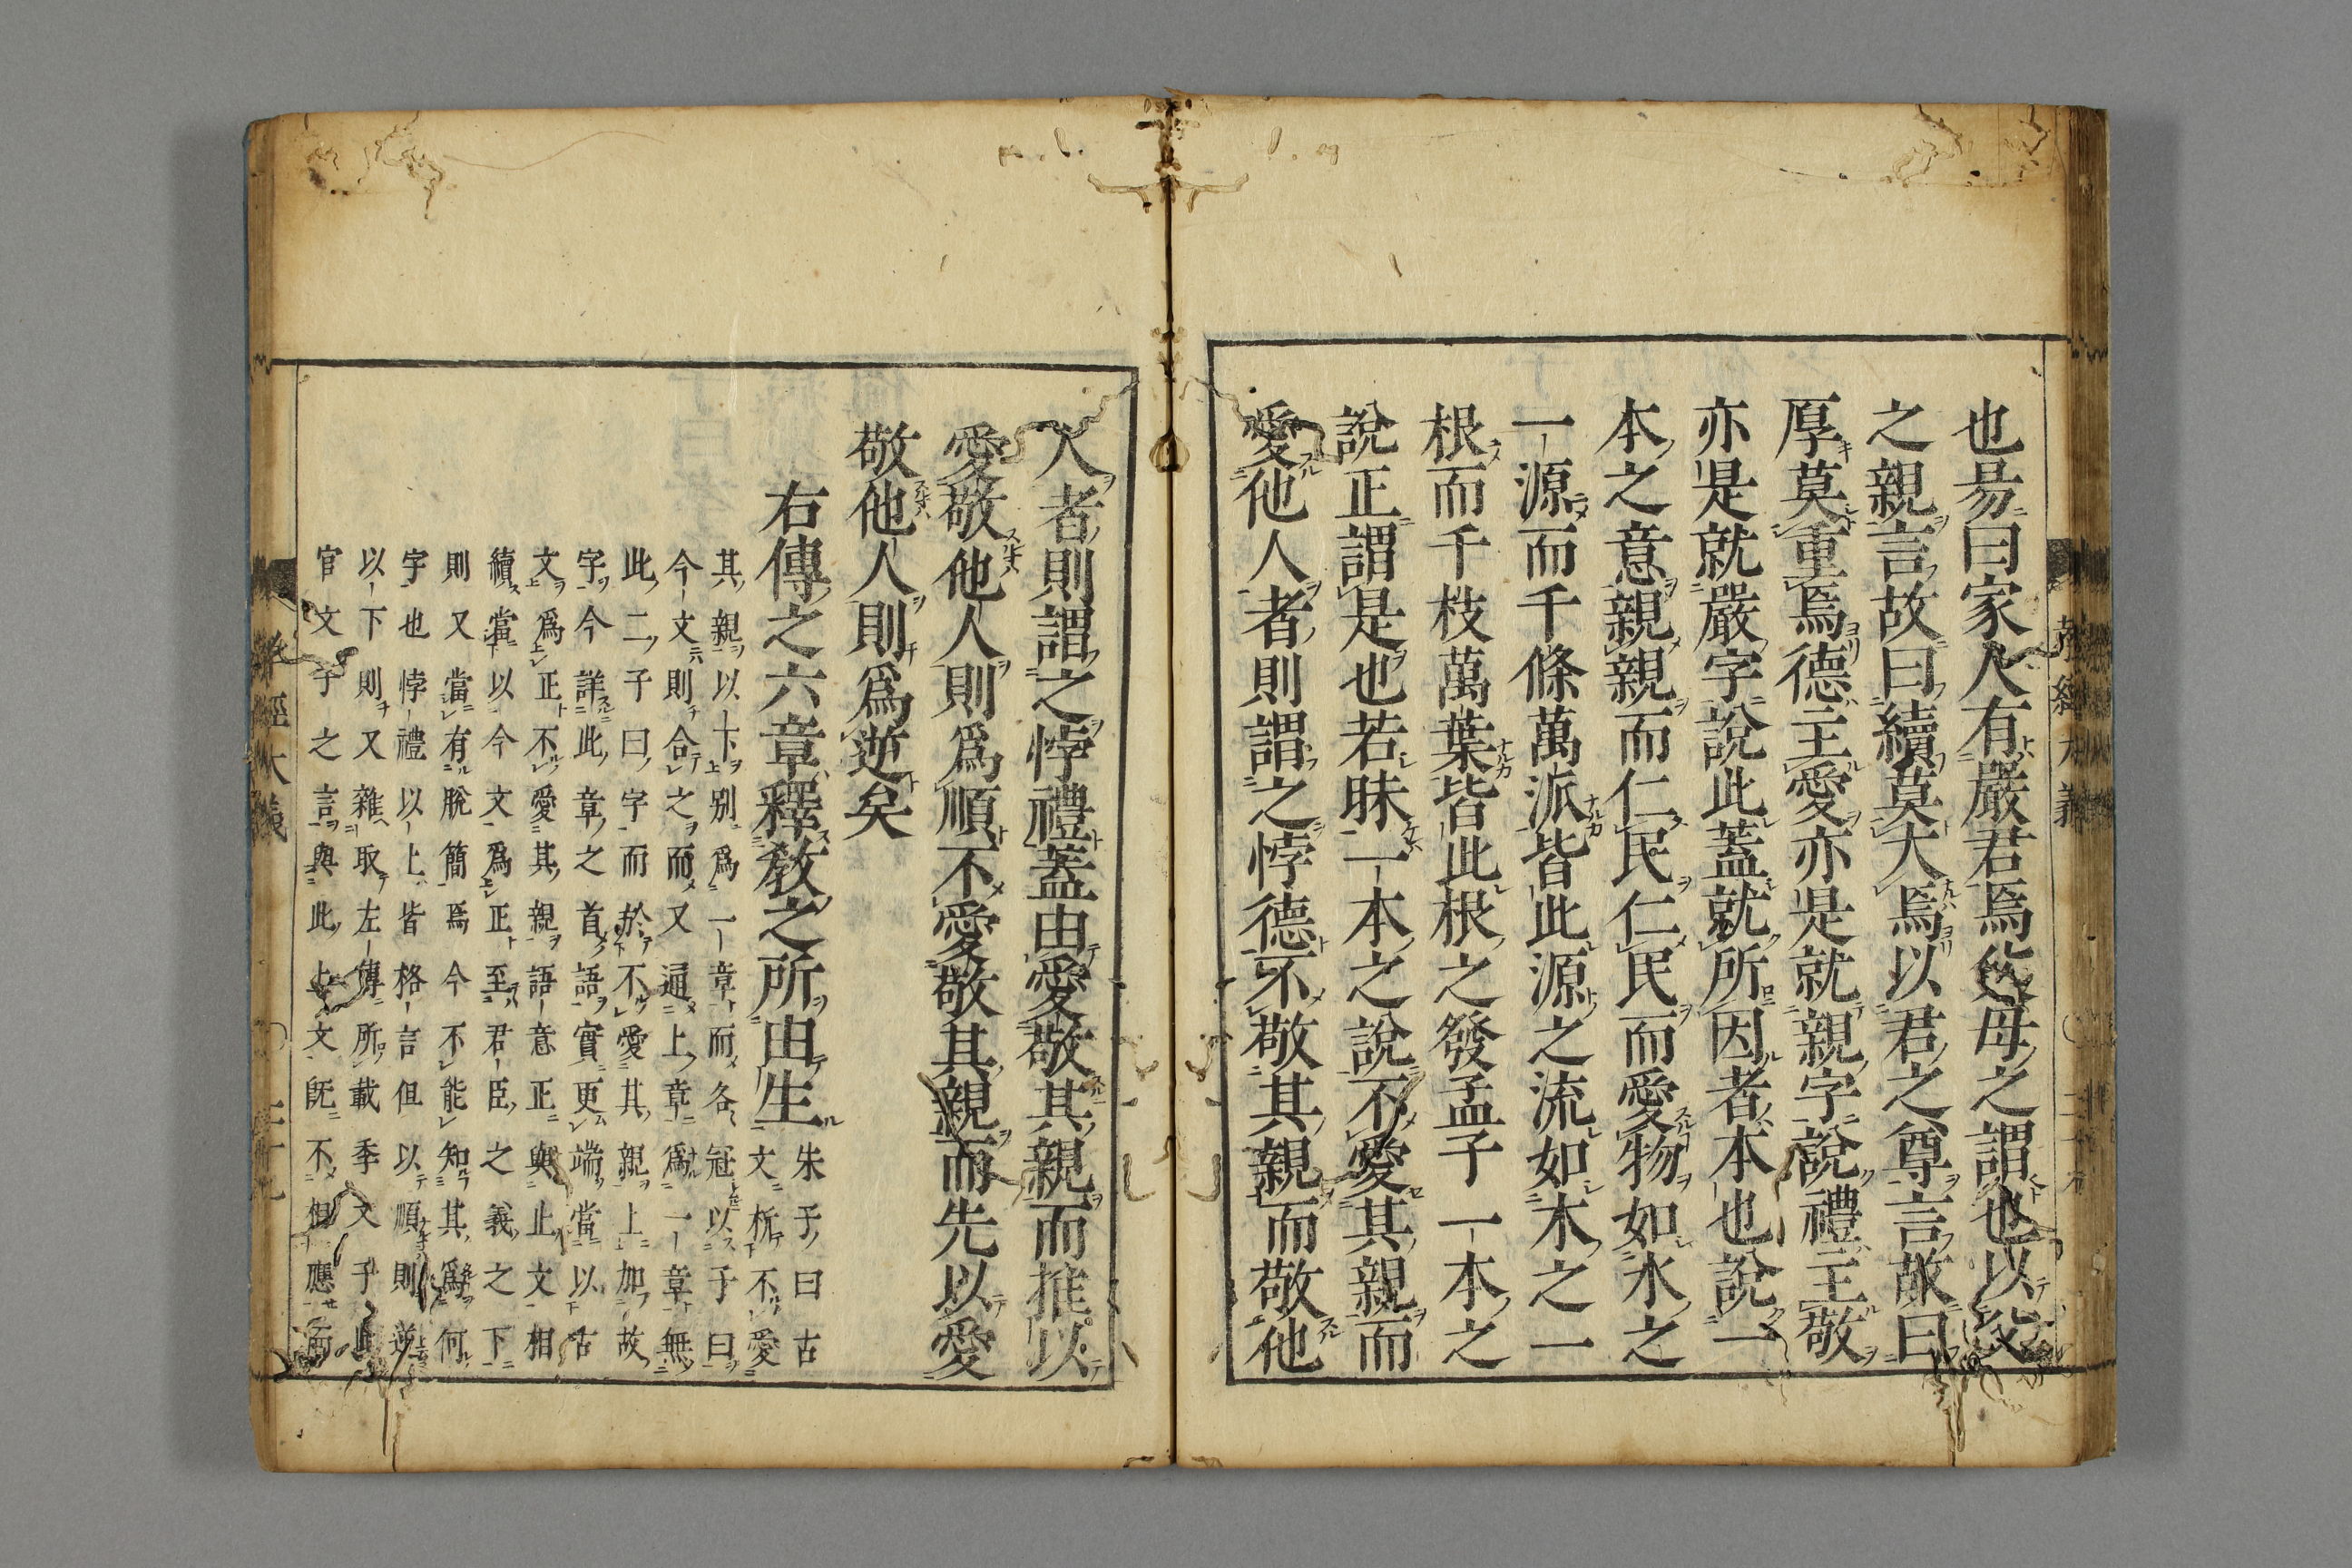 也昜曰家人有嚴君焉父母之謂也以父
之親言故曰續莫大焉以君之尊言故曰
厚莫重焉德主愛亦是就親字說禮主敬
亦是就嚴字說此蓋就所因者本也說一
本之意親親而仁民仁民而愛物如水之
一源而千條萬派皆此源之流如木之一
根而千枝萬葉皆此根之發孟子一本之
說正謂是也若昧一本之說不愛其親而
愛他人者則謂之悖德不敬其親而敬他
人者則謂之悖禮蓋由愛敬其親而推以
愛敬他人則爲順不愛敬其親而先以愛
敬他人則爲逆矣
右傳之六章釋敎之所由生
朱子曰古
文析不愛
其親以下別爲一章而各冠以子曰
今文則合之而又通上章爲一章無
此二子曰字而於不愛其親上加故
字今詳此章之首語實更端當以古
文爲正不愛其親語意正與上文相
續當以今文爲正至君臣之義之下
則又當有脫簡焉今不能知其爲何
字也悖禮以上皆格言但以順則逆
以下則又雜取左傳所載季文子
官文子之言與此上文旣不相應而
孝經大義